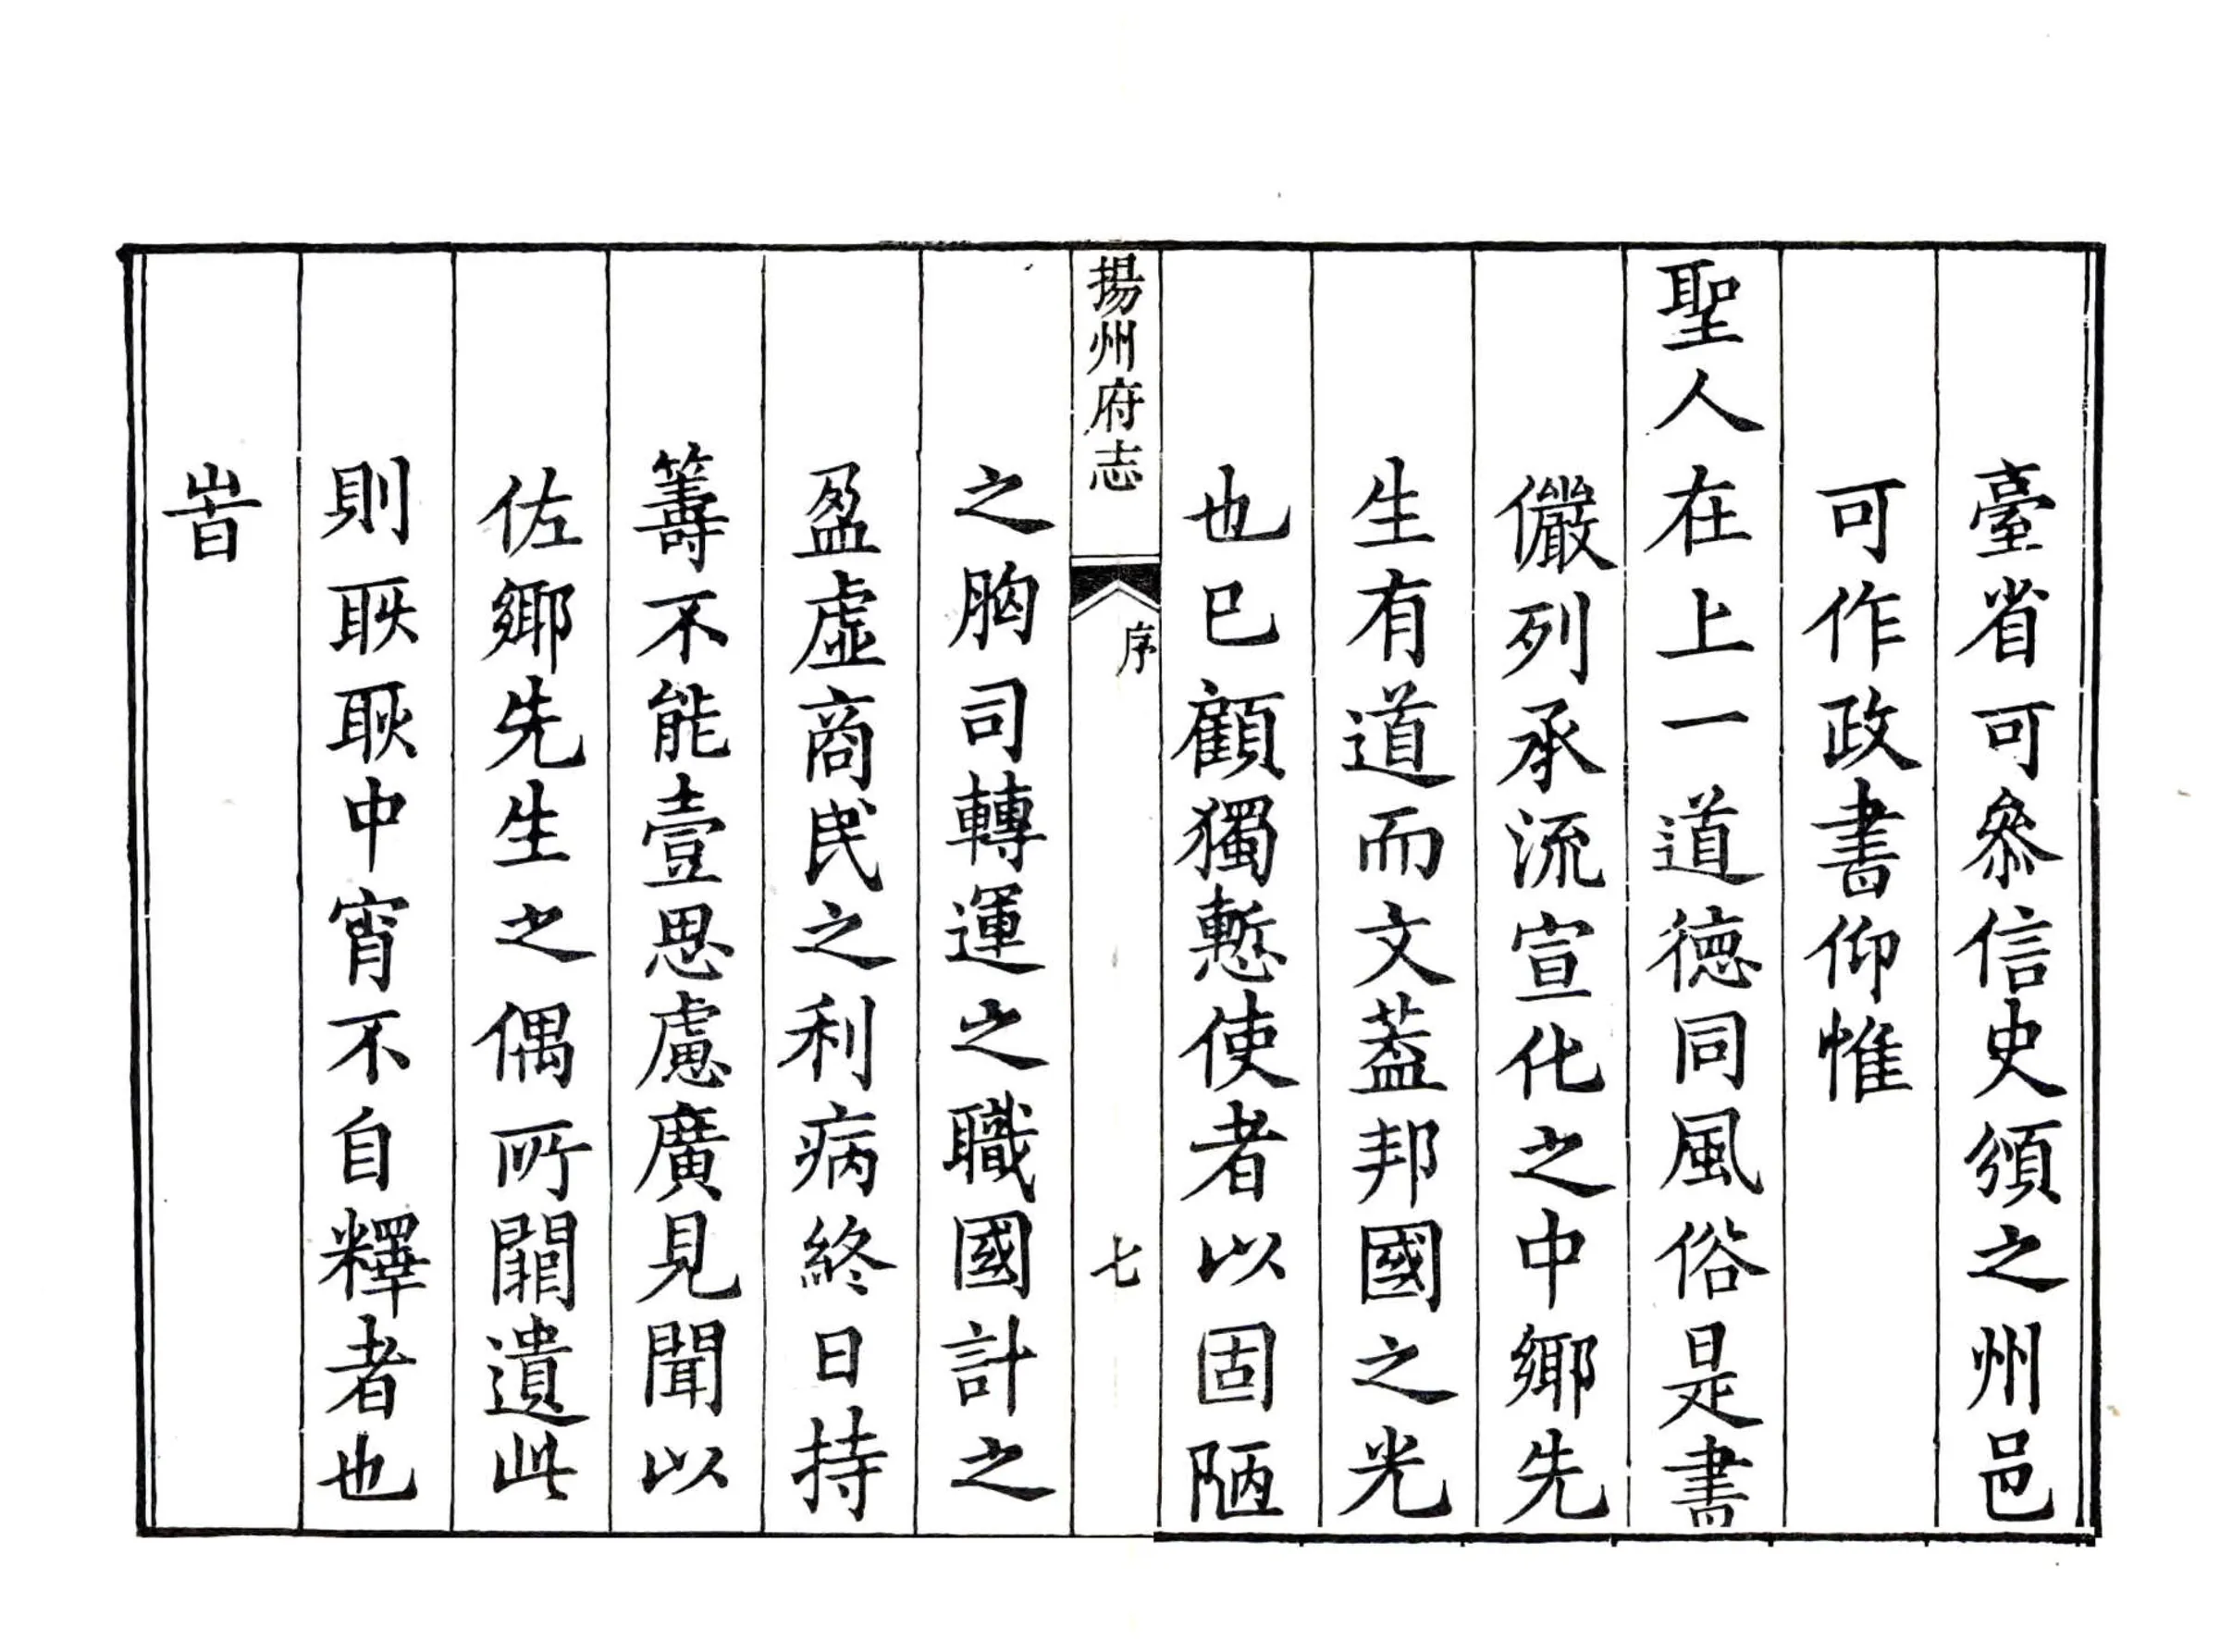 臺省可叅信史頒之州邑
可作政書仰惟
聖人在上一道德同風俗是書
儼列承流宣化之中鄉先
生有道而文葢邦國之光
也已顧獨慙使者以固陋
揚州府志
序
七
之胸司轉運之職國計之
盈虛商民之利病終日持
籌不能壹思慮廣見聞以
佐鄉先生之偶所闕遺此
則耿耿中宵不自釋者也
旹